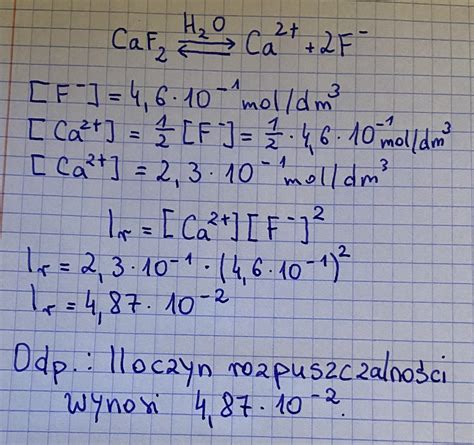 CaF₂ ⇌ H₂O Ca²⁺ + 2F⁻
[F⁻] = 4,6 · 10⁻¹ mol/dm³
[Ca²⁺] = ½ [F⁻] = ½ · 4,6 · 10⁻¹ mol/dm³
[Ca²⁺] = 2,3 · 10⁻¹ mol/dm³
Ir = [Ca²⁺][F⁻]²
Ir = 2,3 · 10⁻¹ · (4,6 · 10⁻¹)²
Ir = 4,87 · 10⁻²
Odp.: Iloczyn rozpuszczalności
wynosi 4,87 · 10⁻².